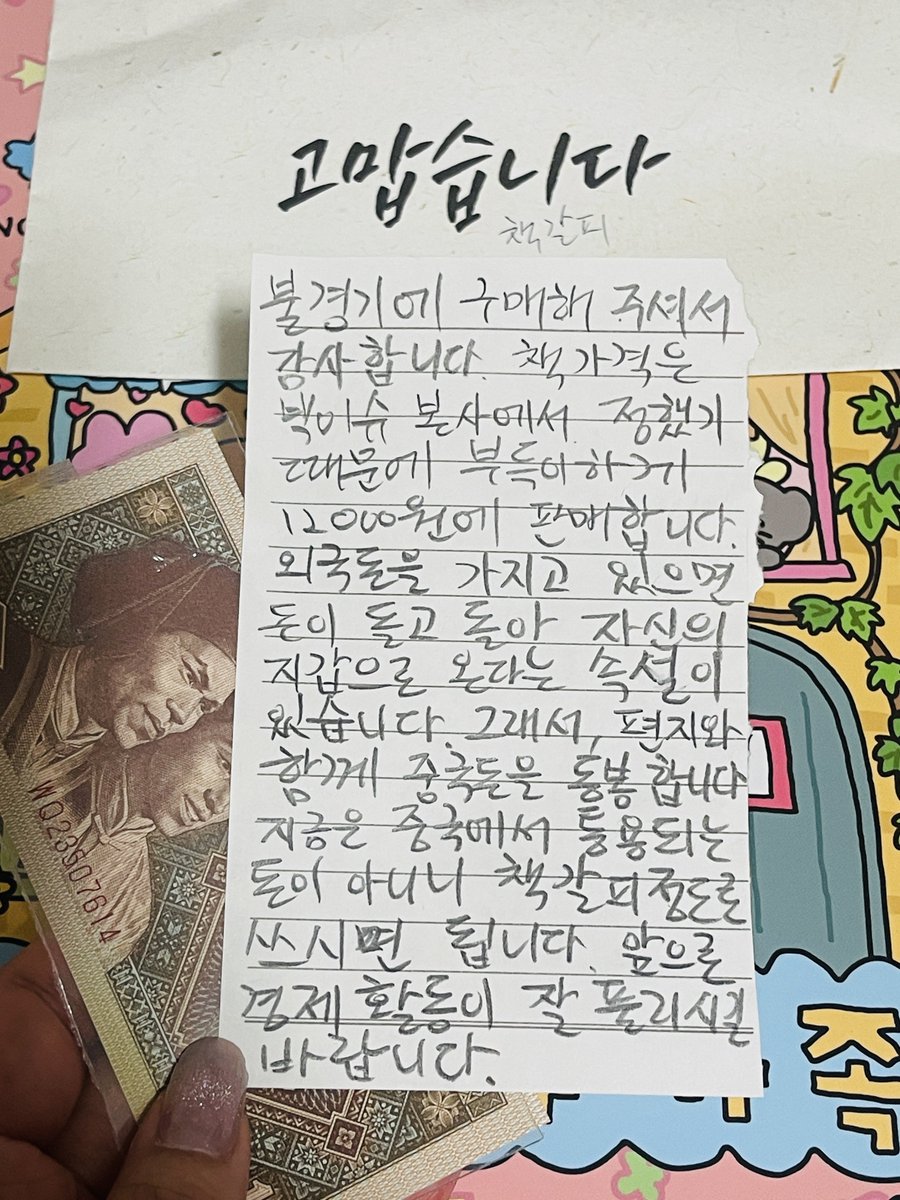 고맙습니다
책갈피
불경기에 구매해 주셔서
감사합니다. 책가격은
빅이슈 본사에서 정했기
때문에 부득이하게
12000원에 판매합니다.
외국돈을 가지고 있으면
돈이 돌고 돌아 자신의
지갑으로 온다는 속설이
있습니다. 그래서, 편지와
함께 중국돈을 동봉합니다
지금은 중국에서 통용되는
돈이 아니니 책갈피정도로
쓰시면 됩니다. 앞으로
경제활동이 잘 풀리시길
바랍니다.
WQ23507614